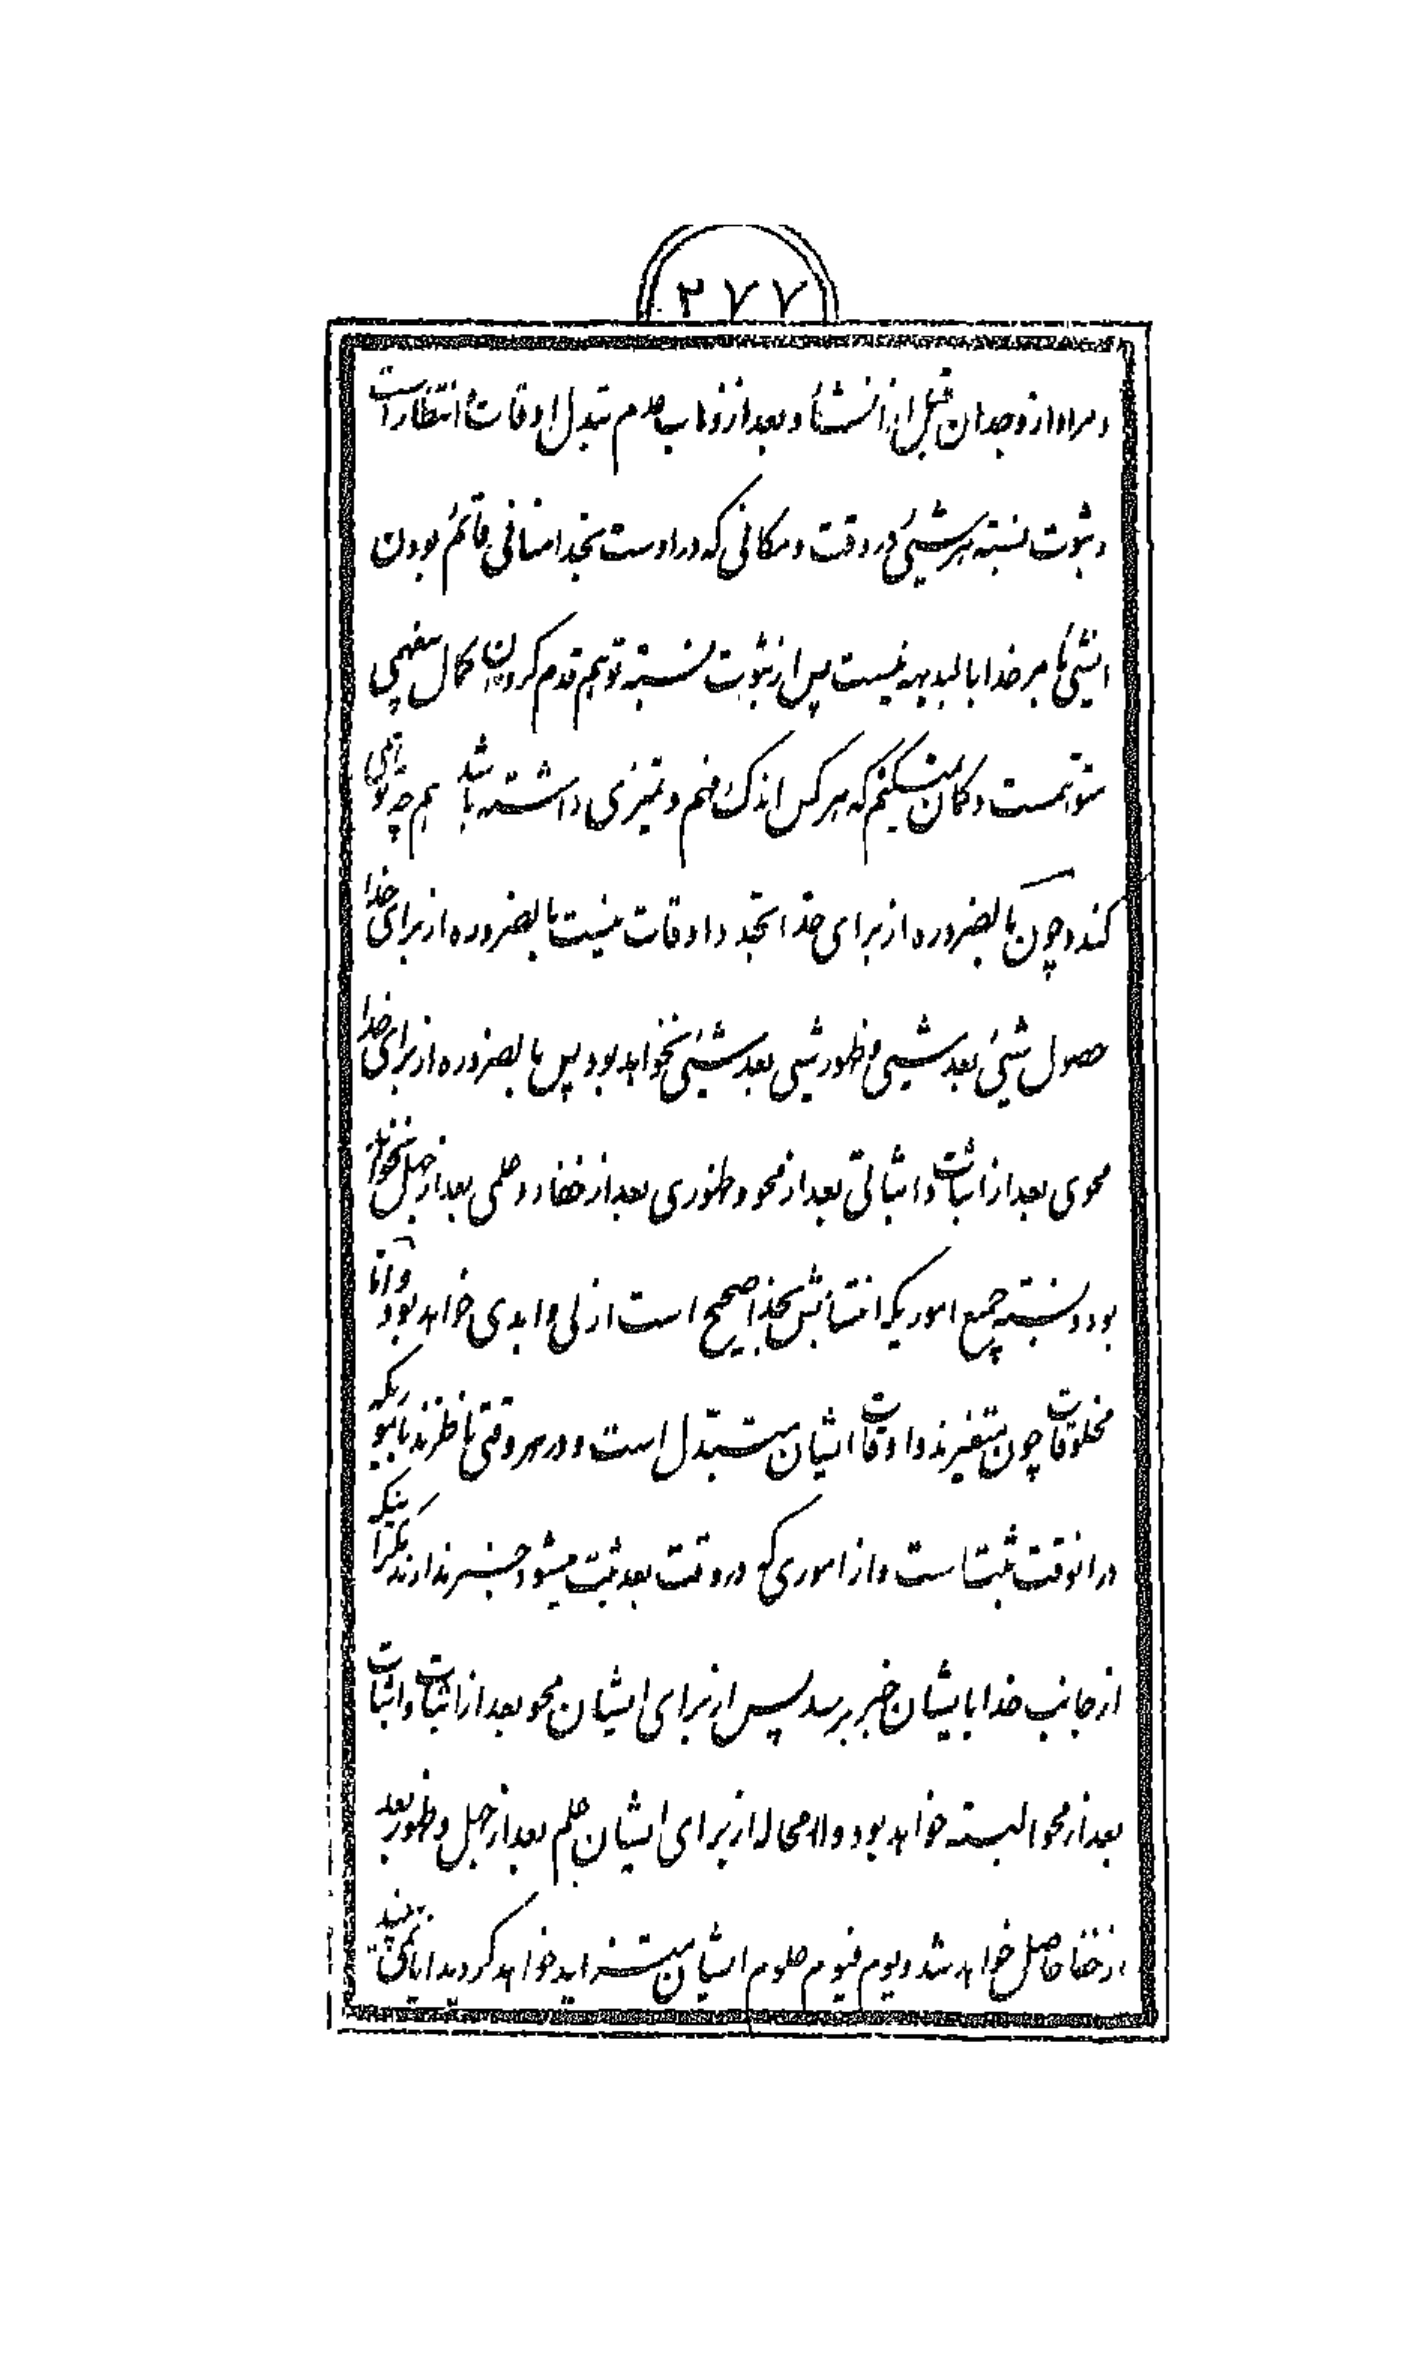 ۲۷۷
و مراد از وجدان قبل از انشاء و بعد از ذهاب عدم تبدل اوقات و انتظار است
و ثبوت نسبته هر شیئی در وقت و مکانی که در اوست بخدا منافی قائم بودن
اشیاء مر خدا بالبدیهه نیست پس از ثبوت نسبته توهم قدم کردن کمال سفیهی
سؤتست و کان میکنم که هر کس اندک فهم و تمیزی داشته باشد هم چه توهمی
کند و چون بالضروره از برای خدا تجدد اوقات نیست بالضروره از برای خدا
حصول شیئی بعد شیئی و ظهور شیئی بعد شیئی نخواهد بود پس بالضروره از برای خدا
محوی بعد از اثبات و اثباتی بعد از محو و ظهوری بعد از خفاء و علمی بعد از جهل نخواهد
بود و نسبته جمیع اموریکه انتسابش بخدا صحیح است ازلی و ابدی خواهد بود و اما
مخلوقات چون متغیرند و اوقات ایشان متبدل است و در هر وقتی ناظرند بامّوریکه
در انوقت ثبت است و از اموری که در وقت بعد ثبت میشود خبر ندارند مگر اینکه
از جانب خدا بایشان خبر برسد پس از برای ایشان محو بعد از اثبات و اثبات
بعد از محو البته خواهد بود و لامحاله از برای ایشان علم بعد از جهل و ظهور بعد
از خفا حاصل خواهد شد و یوم فیوم علوم ایشان متزاید خواهد گردید ایا نمی‌بینید